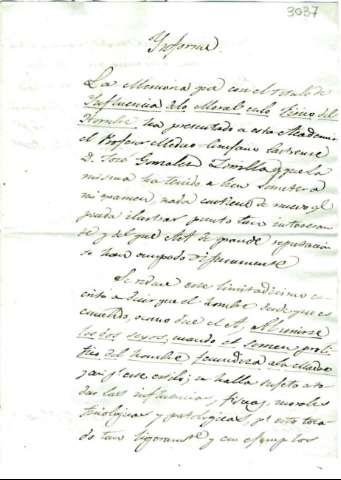 3037
Informe.
La Memoria que con el titulo de
Influencia de lo Moral en lo Fisico del
Hombre, ha presentado a esta Academia
el Profesor Medico Cirujano
D. José Gonzalez y que la
misma ha tenido a bien someter a
mi examen, nada contiene de nuevo q.
pueda ilustrar punto tan interesan
te y del que AA de grande reputacion
se han ocupado
Se reduce este limitadisimo es
crito a decir que el hombre desde que es
como dice el A, Al unirse
los dos sexos, cuando el semen proli
fico del hombre fecundiza a la Madre
se halla sujeto a to
das las influencias, fisicas, morales
fisiologicas y patologicas, p.º esto toca
do tan ligeram.te y con ejemplos